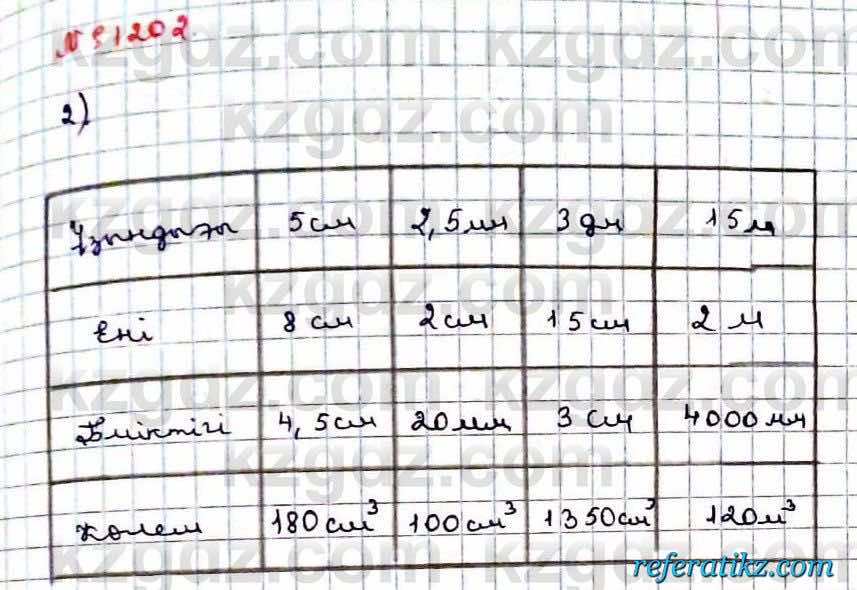 № 1202
2)
Ұзындығы 5 см 2,5 мм 3 дм 15 м
Ені 8 см 2 см 15 см 2 м
Биіктігі 4,5 см 20 мм 3 см 4000 мм
Көлем 180 см³ 100 см³ 1350 см³ 120 м³
kzgdz.com
referatikz.com